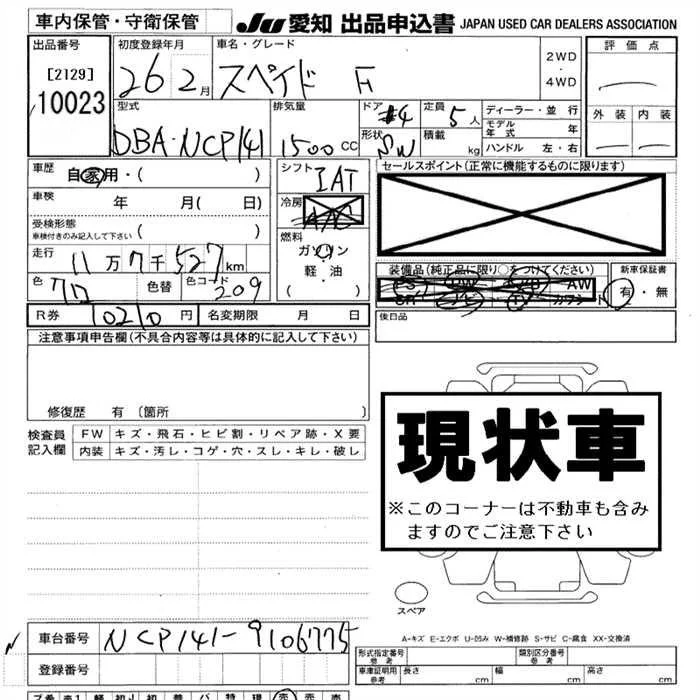 車内保管・守衛保管 JU 愛知 出品申込書 JAPAN USED CAR DEALERS ASSOCIATION
出品番号 初度登録年月 車名・グレード 評価点
[2129] 26 2月 スペイド F 2WD・4WD
10023
型式 排気量 ドア #4 定員 5人 ディーラー・並行 外装 内装
DBA-NCP141 1500 CC 形状 SW 積載 kg モデル年式 年
ハンドル 左・右
車歴 自家用・( ) シフト IAT セールスポイント(正常に機能するものに限ります)
車検 年 月( 日) 冷房 A/C
受検形態 ( )
車検付きのみ記入して下さい
燃料 ガソリン
走行 11万7千527km 軽・油
・( )
装備品(純正品に限り○をつけてください) 新車保証書
PS PW AW 有・無
SR カワシート
色 色替 色コード 209
R券 10210円 名変期限 月 日 後日品
注意事項申告欄(不具合内容等は具体的に記入して下さい)
修復歴 有 〔箇所 〕
検査員記入欄 FW キズ・飛石・ヒビ割・リペア跡・X要
内装 キズ・汚レ・コゲ・穴・スレ・キレ・破レ
現状車
※このコーナーは不動車も含み
ますのでご注意下さい
スペア
A-キズ E-エクボ U-凹み W-補修跡 S-サビ C-腐食 XX-交換済
車台番号 NCP141-9106775
登録番号
形式指定番号 参考 類別区分番号 参考
車庫証明用 参考 長さ cm 幅 cm 高さ cm